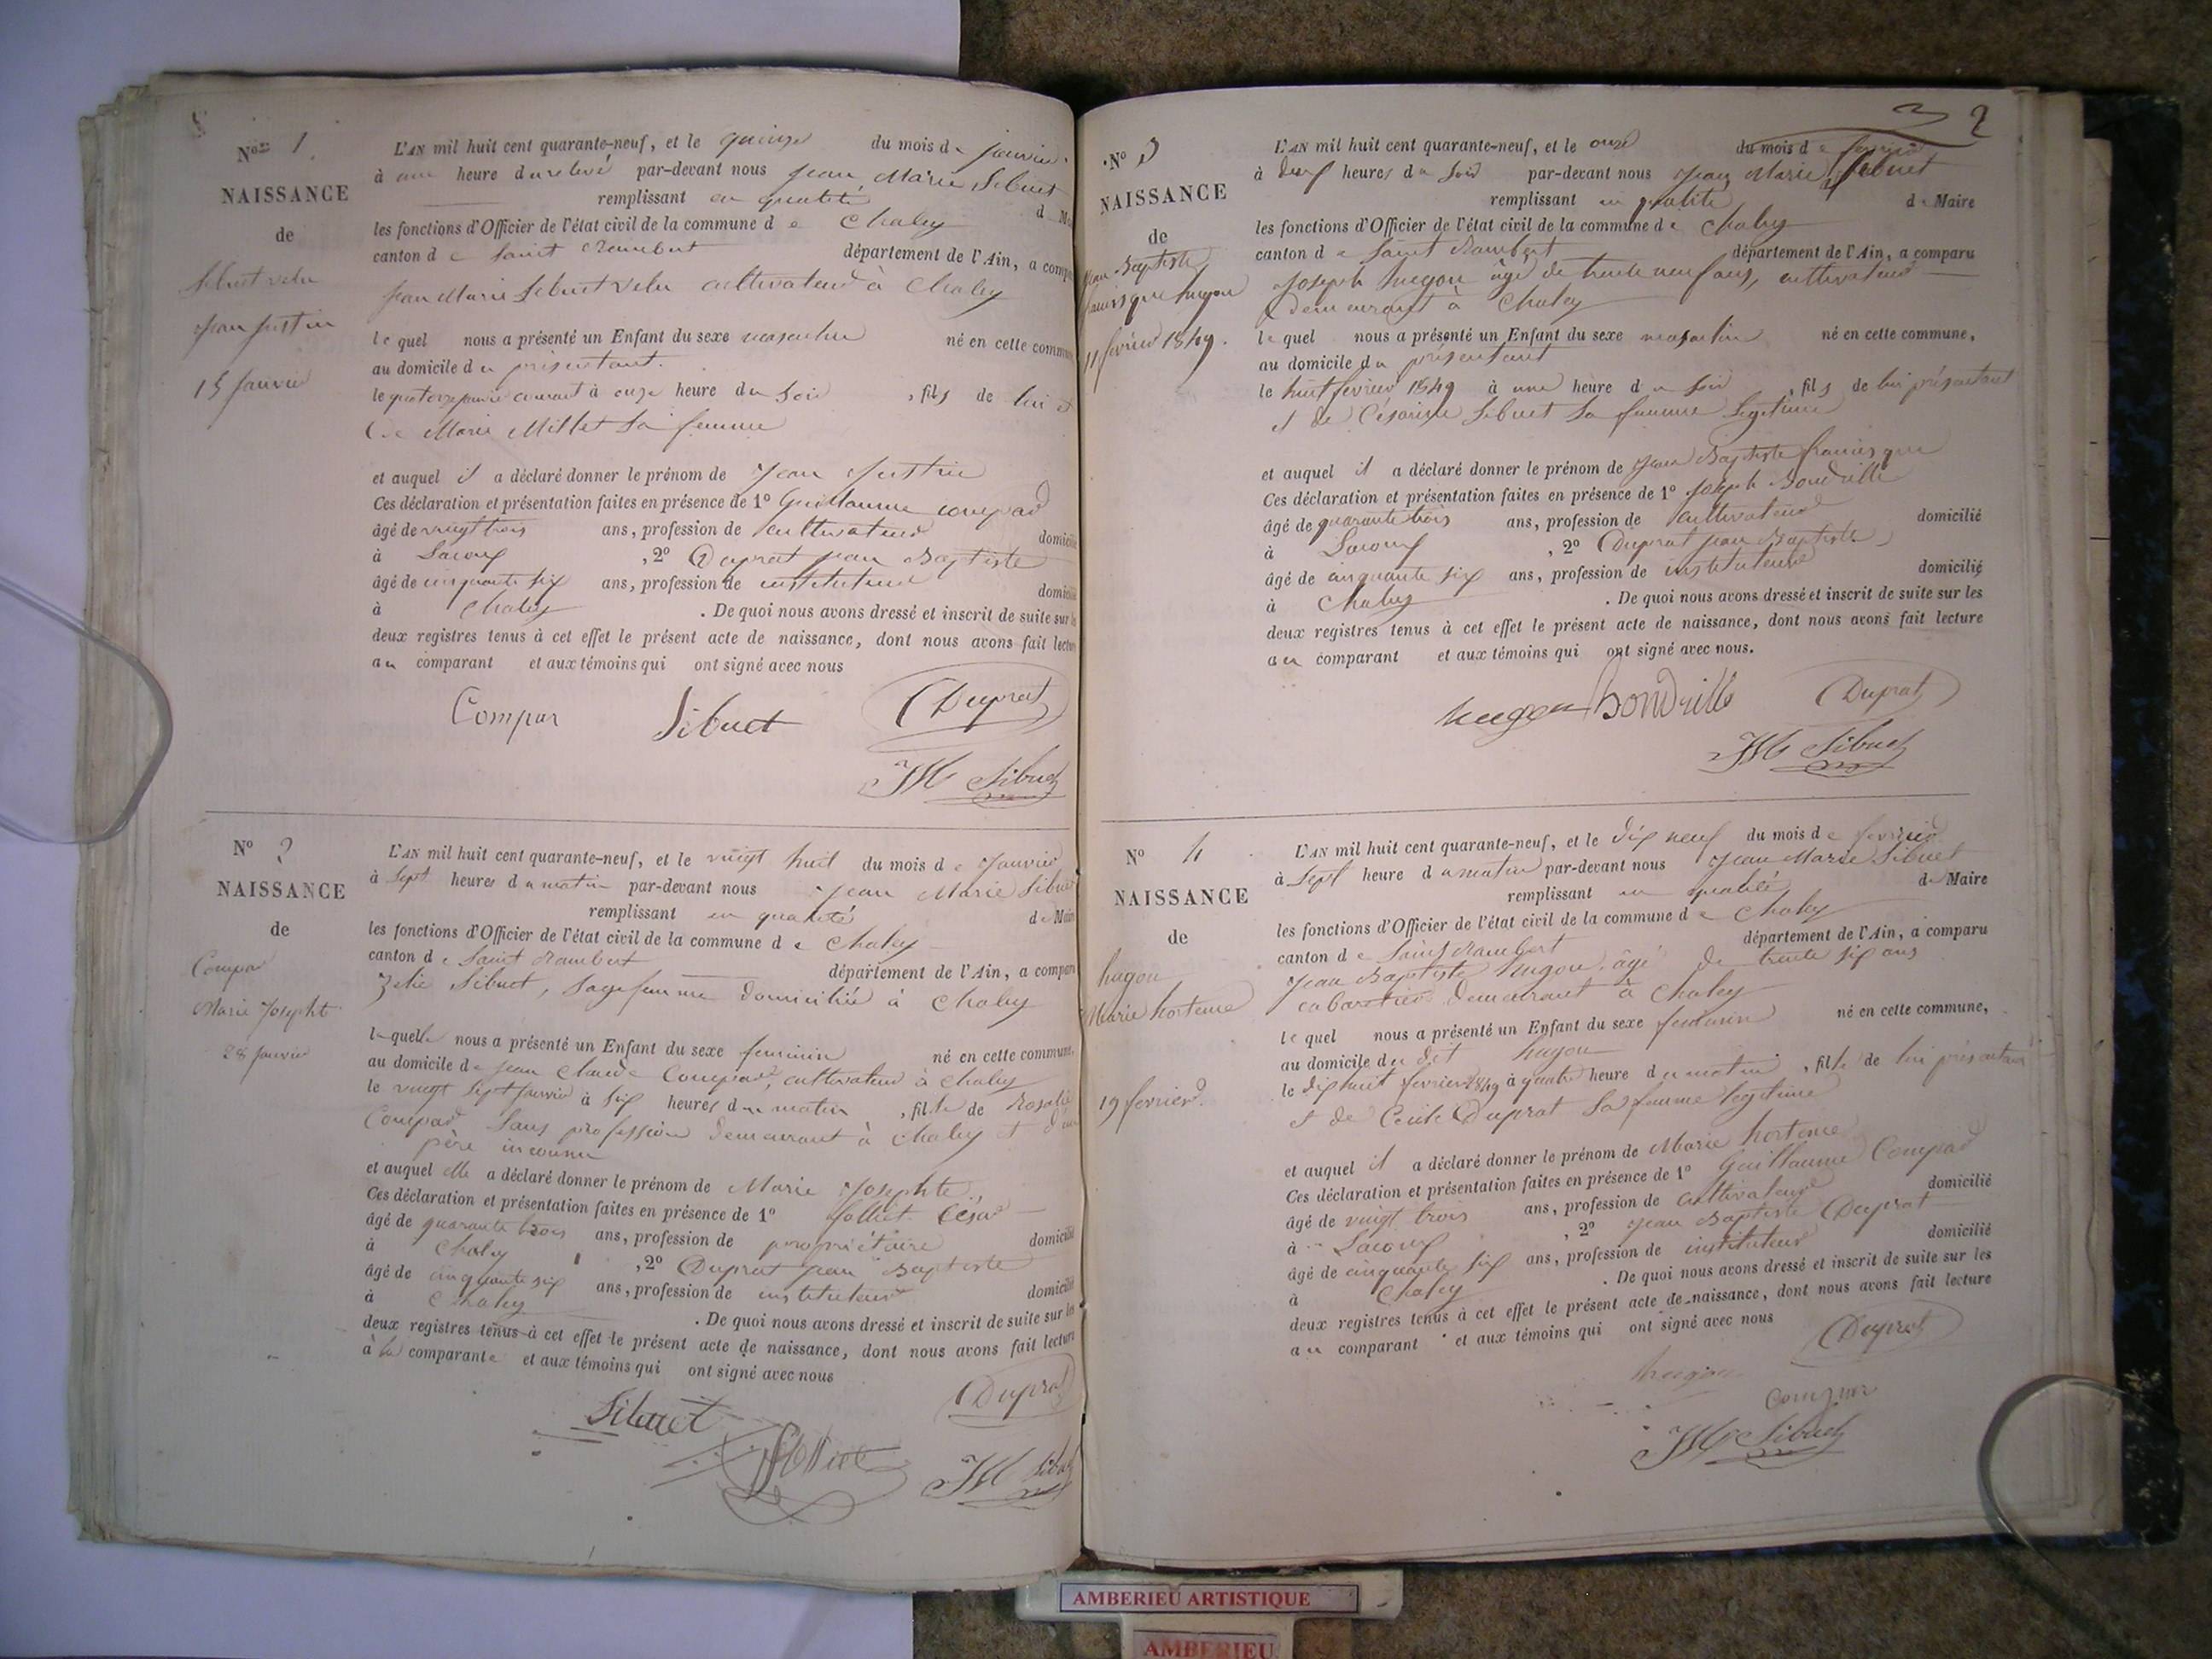 N° 1
NAISSANCE
de
Sibuet velu
Jean Justin
15 Janvier
L'AN mil huit cent quarante-neuf, et le quinze du mois de Janvier
à une heure du relevé par-devant nous Jean Marie Sibuet
remplissant en qualité d
les fonctions d'Officier de l'état civil de la commune de Chaley
canton de Saint Rambert département de l'Ain, a comp
Jean Marie Sibuet velu cultivateur à Chaley
lequel nous a présenté un Enfant du sexe masculin né en cette commun
au domicile du présentant.
le quatorze janvier courant à onze heure du soir, fils de lui et
de Marie Millet sa femme
et auquel il a déclaré donner le prénom de Jean Justin
Ces déclaration et présentation faites en présence de 1° Guillaume Compar
âgé de vingt trois ans, profession de cultivateur domicilié
à Lacoux, 2° Duprat jean Baptiste
âgé de cinquante six ans, profession de instituteur domicilié
à Chaley. De quoi nous avons dressé et inscrit de suite sur l
deux registres tenus à cet effet le présent acte de naissance, dont nous avons fait lectur
au comparant et aux témoins qui ont signé avec nous
Compar Sibuet Duprat
JM Sibuet
N° 2
NAISSANCE
de
Compar
Marie Josephte
28 Janvier
L'AN mil huit cent quarante-neuf, et le vingt huit du mois de Janvier
à Sept heures du matin par-devant nous Jean Marie Sibuet
remplissant en qualité de Maire
les fonctions d'Officier de l'état civil de la commune de Chaley
canton de Saint Rambert département de l'Ain, a compar
Zelie Sibuet, Sage femme domiciliée à Chaley
laquelle nous a présenté un Enfant du sexe feminin né en cette commune,
au domicile de Jean Claude Compar, cultivateur à Chaley
le vingt Sept Janvier à six heures du matin, fille de Rosalie
Compar Sans profession demeurant à Chaley et d'un
père inconnu
et auquel elle a déclaré donner le prénom de Marie Josephte
Ces déclaration et présentation faites en présence de 1° Folliet César
âgé de quarante trois ans, profession de propriétaire domicilié
à Chaley, 2° Duprat Jean Baptiste
âgé de cinquante six ans, profession de instituteur domicilié
à Chaley. De quoi nous avons dressé et inscrit de suite sur les
deux registres tenus à cet effet le présent acte de naissance, dont nous avons fait lecture
à la comparante et aux témoins qui ont signé avec nous
Duprat
Sibuet
Folliet JM Sibuet
2
N° 3
NAISSANCE
de
Jean Baptiste
francisque hugon
11 février 1849.
L'AN mil huit cent quarante-neuf, et le onze du mois de février
à deux heures du soir par-devant nous Jean Marie Sibuet
remplissant en qualité de Maire
les fonctions d'Officier de l'état civil de la commune de Chaley
canton de Saint Rambert département de l'Ain, a comparu
Joseph hugon âgé de trente neuf ans, cultivateur
demeurant à Chaley
lequel nous a présenté un Enfant du sexe masculin né en cette commune,
au domicile du présentant
le huit février 1849 à une heure du soir, fils de lui présentant
et de Césarine Sibuet sa femme légitime
et auquel il a déclaré donner le prénom de Jean Baptiste francisque
Ces déclaration et présentation faites en présence de 1° Joseph Bondrille
âgé de quarante trois ans, profession de cultivateur domicilié
à Lacoux, 2° Duprat jean Baptiste
âgé de cinquante six ans, profession de instituteur domicilié
à Chaley. De quoi nous avons dressé et inscrit de suite sur les
deux registres tenus à cet effet le présent acte de naissance, dont nous avons fait lecture
au comparant et aux témoins qui ont signé avec nous.
hugon bondrille Duprat
JM Sibuet
N° 4
NAISSANCE
de
hugon
Marie hortense
19 février.
L'AN mil huit cent quarante-neuf, et le dix neuf du mois de février
à Sept heure du matin par-devant nous Jean Marie Sibuet
remplissant en qualité de Maire
les fonctions d'Officier de l'état civil de la commune de Chaley
canton de Saint Rambert département de l'Ain, a comparu
Jean Baptiste hugon, âgé de trente six ans
cabaretier demeurant à Chaley
lequel nous a présenté un Enfant du sexe feminin né en cette commune,
au domicile du dit hugon
le dix huit février 1849 à quatre heure du matin, fille de lui présentant
et de Cécile Duprat sa femme légitime
et auquel il a déclaré donner le prénom de Marie hortense
Ces déclaration et présentation faites en présence de 1° Guillaume Compar
âgé de vingt trois ans, profession de cultivateur domicilié
à Lacoux, 2° Jean Baptiste Duprat
âgé de cinquante six ans, profession de instituteur domicilié
à Chaley. De quoi nous avons dressé et inscrit de suite sur les
deux registres tenus à cet effet le présent acte de naissance, dont nous avons fait lecture
au comparant et aux témoins qui ont signé avec nous
Duprat
hugon
Compar
JM Sibuet
AMBERIEU ARTISTIQUE
AMBERIEU